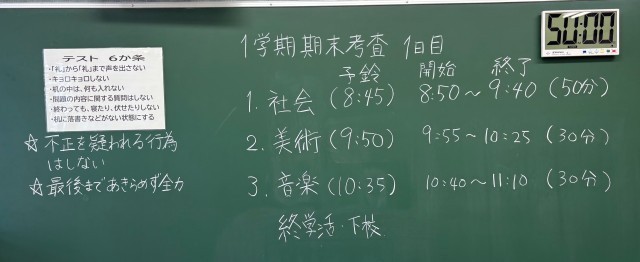 テスト 6か条
・「礼」から「礼」まで声を出さない
・キョロキョロしない
・机の中は、何も入れない
・問題の内容に関する質問はしない
・終わっても、寝たり、伏せたりしない
・机に落書きなどがない状態にする
☆不正を疑われる行為
はしない
☆最後まであきらめず全力
1学期期末考査 1日目
予鈴 開始 終了
1. 社会 (8:45) 8:50～9:40 (50分)
2. 美術 (9:50) 9:55～10:25 (30分)
3. 音楽 (10:35) 10:40～11:10 (30分)
終学活・下校
50:00